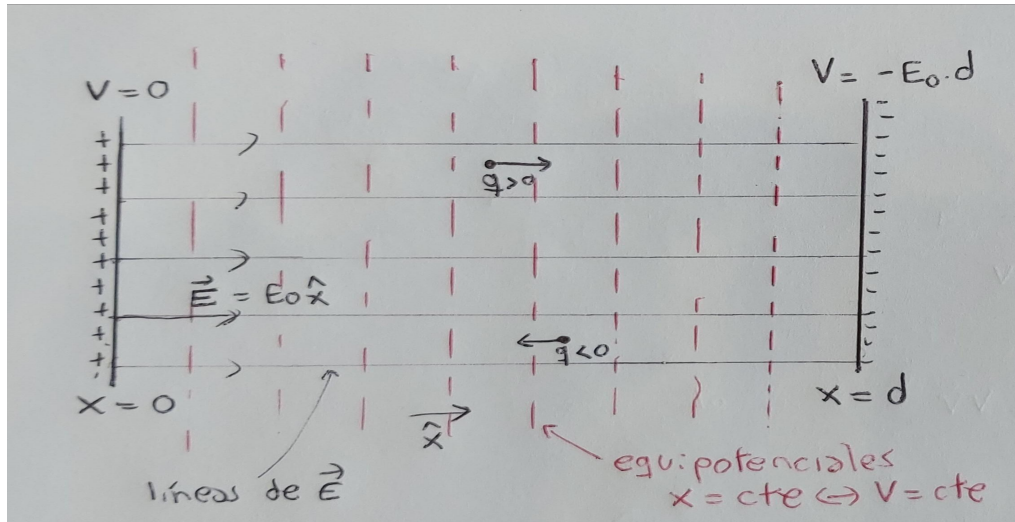 V = 0
V = -E₀.d
q>0
E⃗ = E₀ x̂
q<0
x = 0
x = d
x̂
líneas de E⃗
equipotenciales
x = cte ⇔ V = cte